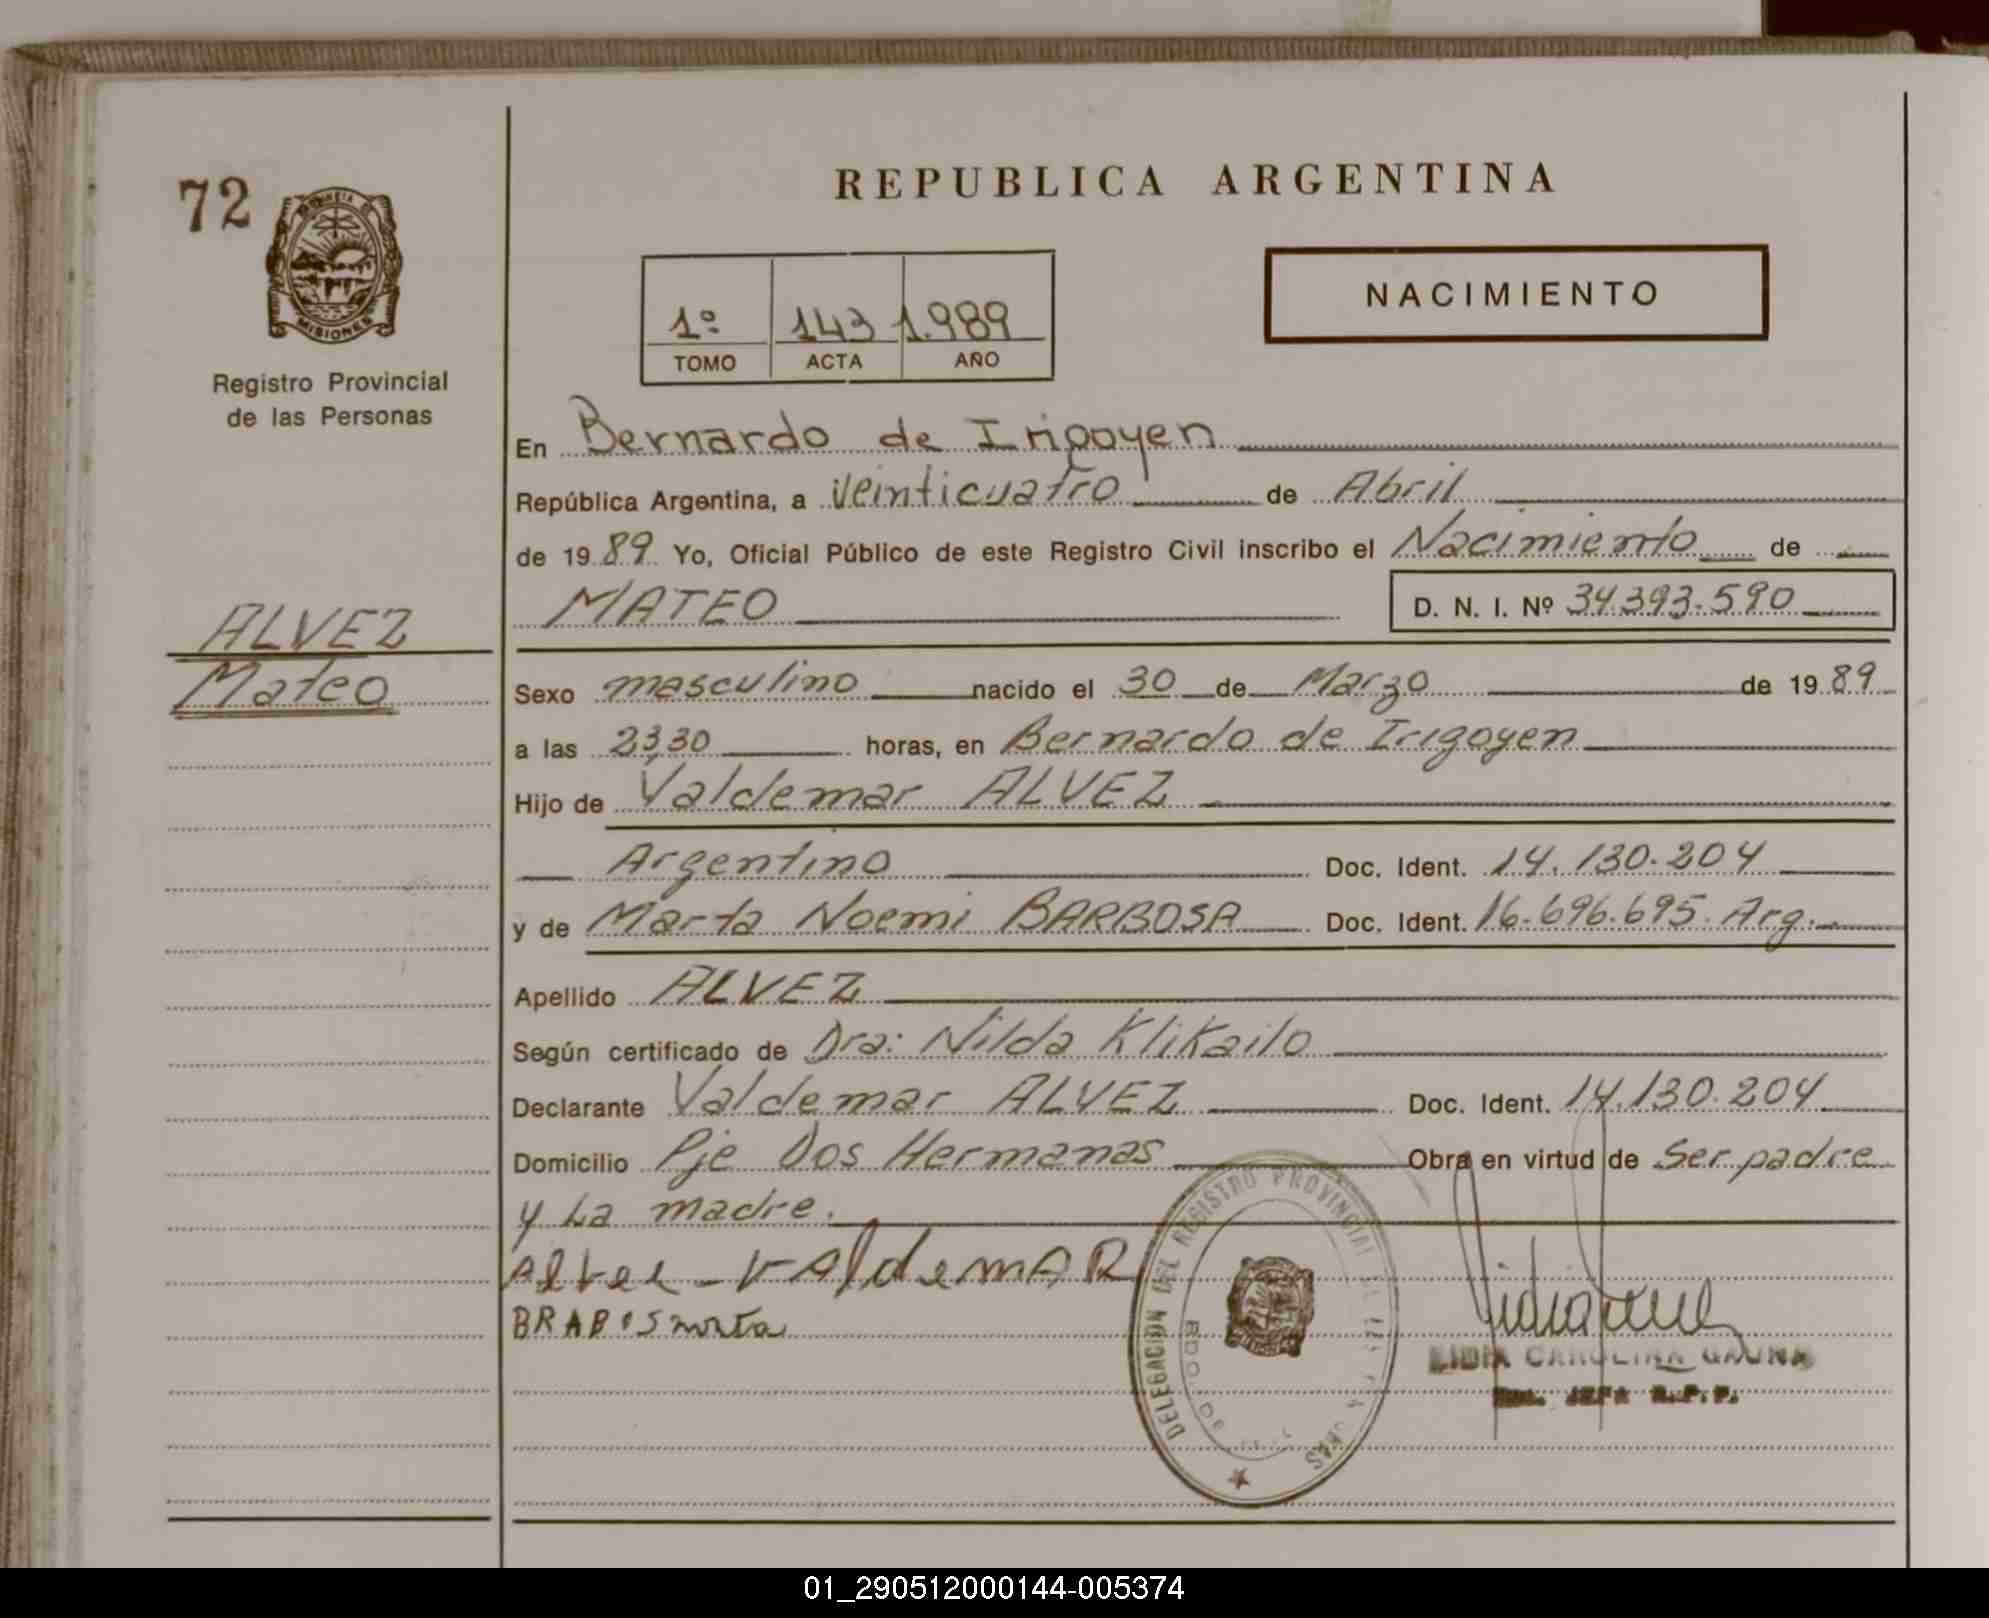 72
MISIONES
Registro Provincial
de las Personas
REPUBLICA ARGENTINA
1º 143 1.989
TOMO ACTA AÑO
NACIMIENTO
En Bernardo de Irigoyen
República Argentina, a veinticuatro de Abril
de 19 89 Yo, Oficial Público de este Registro Civil inscribo el Nacimiento de
MATEO D. N. I. Nº 34.393.590
ALVEZ
Mateo
Sexo masculino nacido el 30 de Marzo de 19 89
a las 23,30 horas, en Bernardo de Irigoyen
Hijo de Valdemar ALVEZ
Argentino Doc. Ident. 14.130.204
y de Marta Noemi BARBOSA Doc. Ident. 16.696.695. Arg.
Apellido ALVEZ
Según certificado de Dra: Nilda Klikailo
Declarante Valdemar ALVEZ Doc. Ident. 14.130.204
Domicilio Pje Dos Hermanas Obra en virtud de Ser padre
y La madre.
Alvez - VAldemAR
BRABOS marta
DELEGACION DEL REGISTRO PROVINCIAL DE LAS PERSONAS
BDO. DE
LIDIA CAROLINA GAUNA
JEFA R.P.P.
01_290512000144-005374